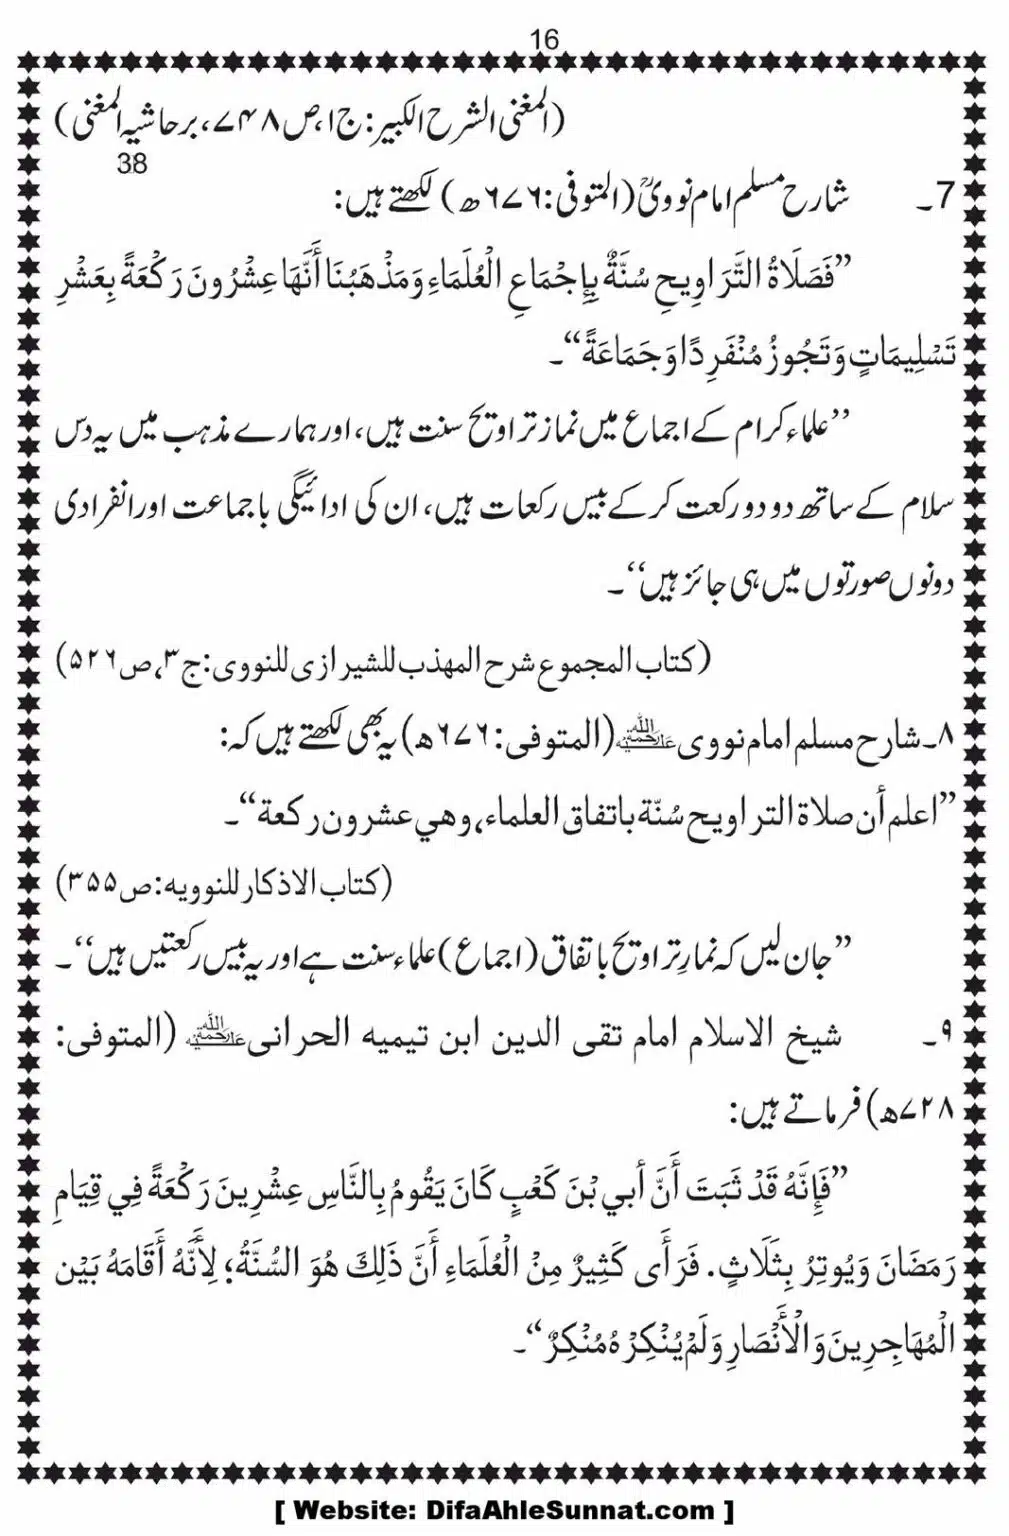 16
(المغنی الشرح الکبیر: ج۱، ص۷۴۸، برحاشیہ المغنی)
38
7۔ شارح مسلم امام نوویؒ (المتوفی: ۶۷۶ھ) لکھتے ہیں:
”فَصَلَاةُ التَّرَاوِيحِ سُنَّةٌ بِإِجْمَاعِ الْعُلَمَاءِ وَمَذْهَبُنَا أَنَّهَا عِشْرُونَ رَكْعَةً بِعَشْرِ
تَسْلِيمَاتٍ وَتَجُوزُ مُنْفَرِدًا وَجَمَاعَةً“۔
”علماء کرام کے اجماع میں نماز تراویح سنت ہیں، اور ہمارے مذہب میں یہ دس
سلام کے ساتھ دو دو رکعت کر کے بیس رکعات ہیں، ان کی ادائیگی باجماعت اور انفرادی
دونوں صورتوں میں ہی جائز ہیں“۔
(کتاب المجموع شرح المهذب للشیرازی للنووی: ج۳، ص۵۲۶)
۸۔ شارح مسلم امام نووی رحمۃ اللہ علیہ (المتوفی: ۶۷۶ھ) یہ بھی لکھتے ہیں کہ:
”اعلم أن صلاة التراويح سُنّة باتفاق العلماء، وهي عشرون ركعة“۔
(کتاب الاذکار للنوویہ: ص۳۵۵)
”جان لیں کہ نمازِ تراویح باتفاق (اجماع) علماء سنت ہے اور یہ بیس رکعتیں ہیں“۔
۹۔ شیخ الاسلام امام تقی الدین ابن تیمیه الحرانی رحمۃ اللہ علیہ (المتوفی:
۷۲۸ھ) فرماتے ہیں:
”فَإِنَّهُ قَدْ ثَبَتَ أَنَّ أبي بْنَ كَعْبٍ كَانَ يَقُومُ بِالنَّاسِ عِشْرِينَ رَكْعَةً فِي قِيَامِ
رَمَضَانَ وَيُوتِرُ بِثَلَاثٍ. فَرَأَى كَثِيرٌ مِنْ الْعُلَمَاءِ أَنَّ ذَلِكَ هُوَ السُّنَّةُ؛ لِأَنَّهُ أَقَامَهُ بَيْن
الْمُهَاجِرِينَ وَالْأَنْصَارِ وَلَمْ يُنْكِرْهُ مُنْكِرٌ“۔
[ Website: DifaAhleSunnat.com ]